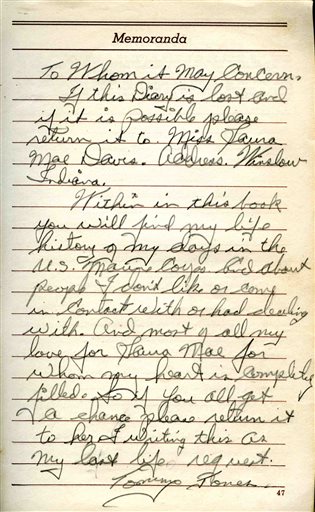 Memoranda
To Whom it May Concern,
If this Diary is lost and
if it is possible please
return it to Miss Laura
Mae Davis. Address. Winslow
Indiana.
Within in this book
you will find my life
history of my days in the
U.S. Marine Corps. And about
people I don't like or come
in Contact with or had dealing
with. And most of all my
love for Laura Mae for
whom my heart is completely
filled. So if you all get
a chance please return it
to her I writing this as
my last life request.
Tommy Jones.
47